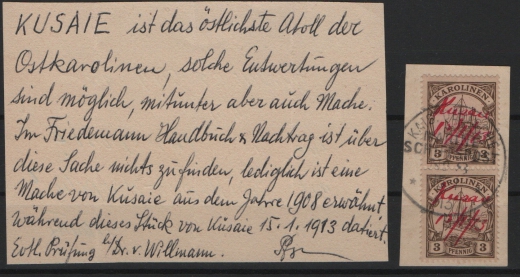 KUSAIE ist das östlichste Atoll der
Ostkarolinen, solche Entwertungen
sind möglich, mitunter aber auch Mache.
Im Friedemann Handbuch & Nachtrag ist über
diese Sache nichts zu finden, lediglich ist eine
Mache von Kusaie aus dem Jahre 1908 erwähnt
während dieses Stück von Kusaie 15.1.1913 datiert.
Evtl. Prüfung b/Dr. v. Willmann.
KAROLINEN
Kusaie
3 PFENNIG 3
KAROLINEN
Kusaie
3 PFENNIG 3